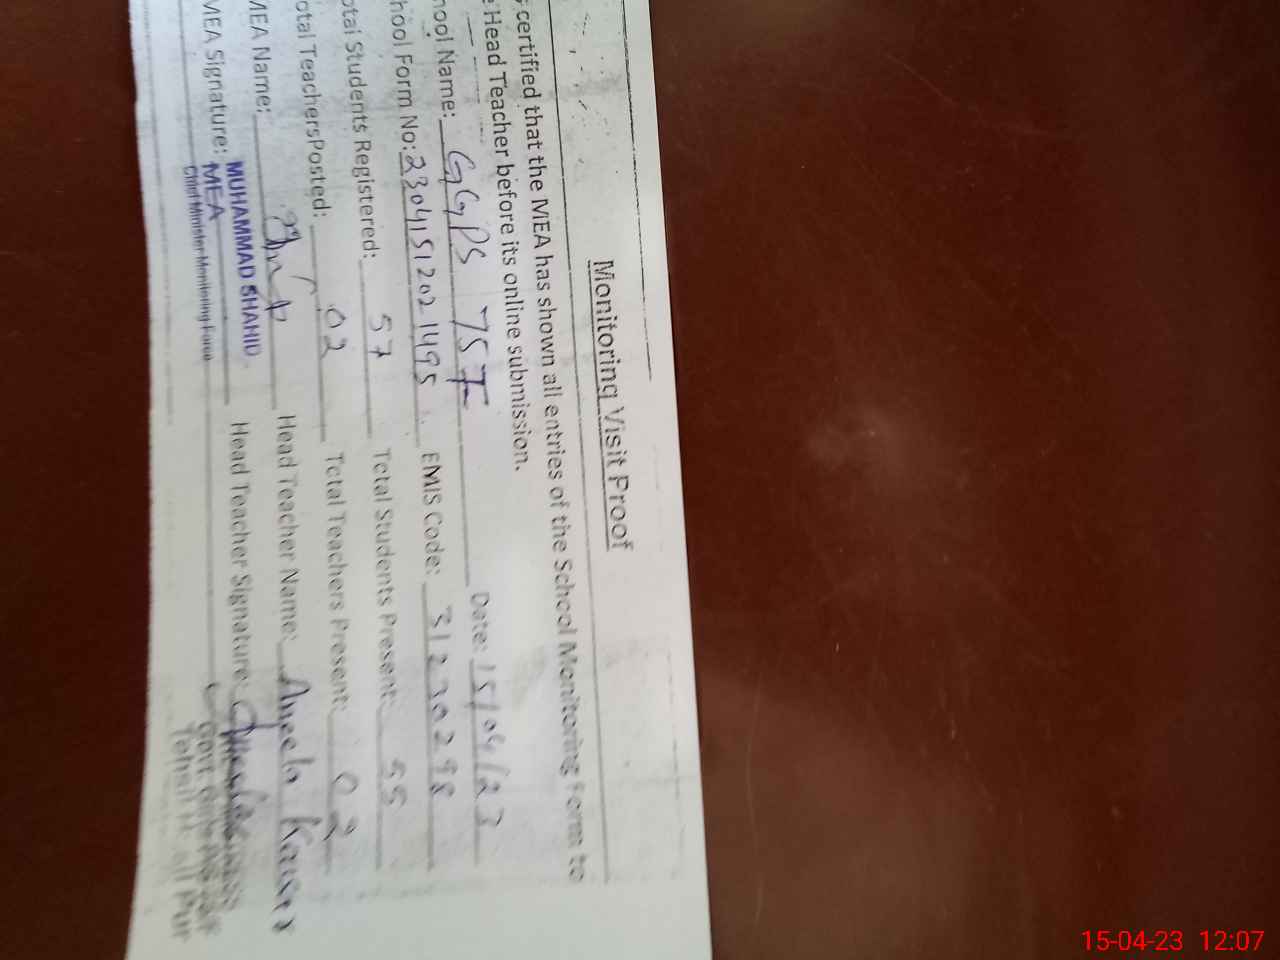 Monitoring Visit Proof
certified that the MEA has shown all entries of the School Monitoring Form to
Head Teacher before its online submission.
ool Name: GGPS 757 Date: 15/04/23
hool Form No: 23041512021495 EMIS Code: 31230298
otal Students Registered: 57 Total Students Present: 55
otal TeachersPosted: 02 Total Teachers Present: 02
MEA Name: Head Teacher Name: Aneela Kausar
MEA Signature: MUHAMMAD SHAHID Head Teacher Signature:
MEA
Chief Minister Monitoring Force
15-04-23 12:07